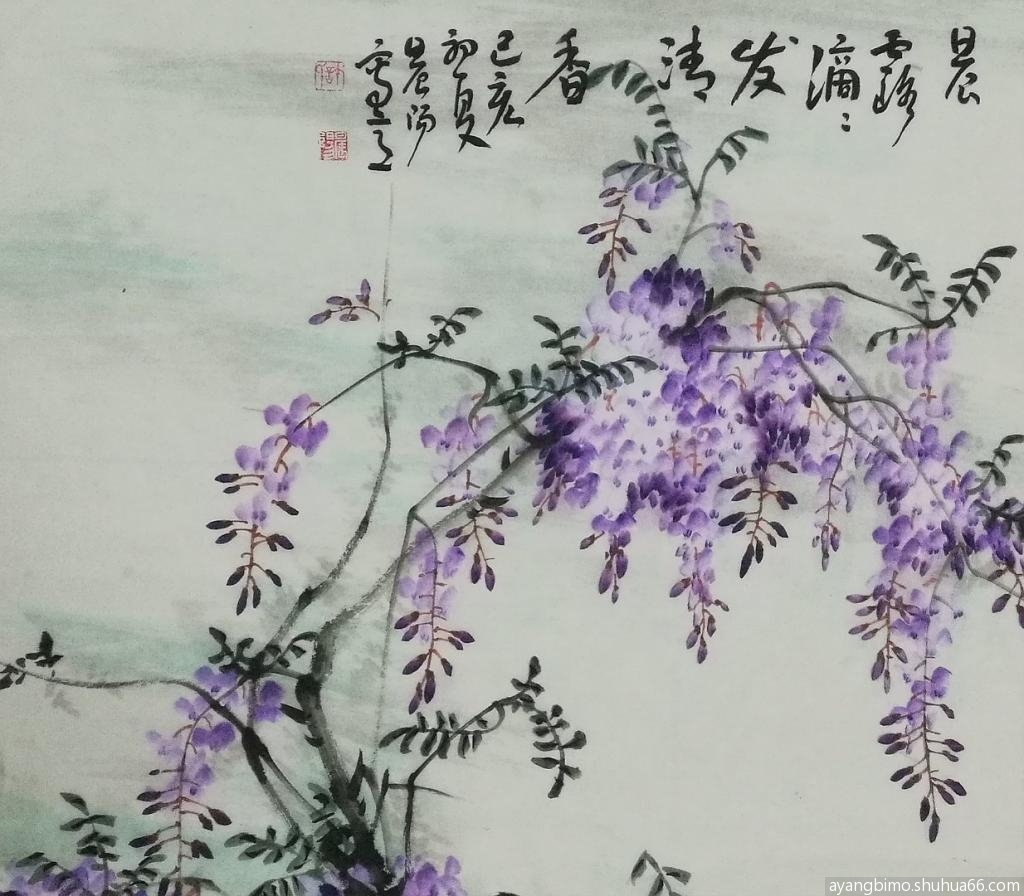 晨
露
滴〻
发
清
香
己亥
初夏
晨阳
ayangbimo.shuhua66.com